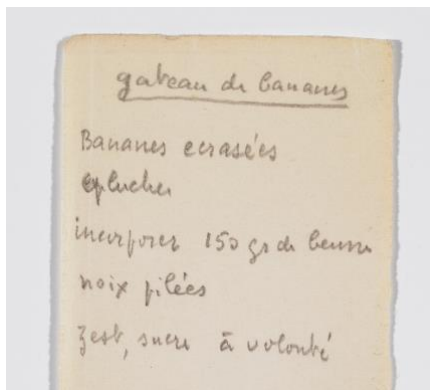 gateau de bananes
Bananes ecrasées
eplucher
incorporer 150 gs de beurre
noix pilées
zest, sucre à volonté